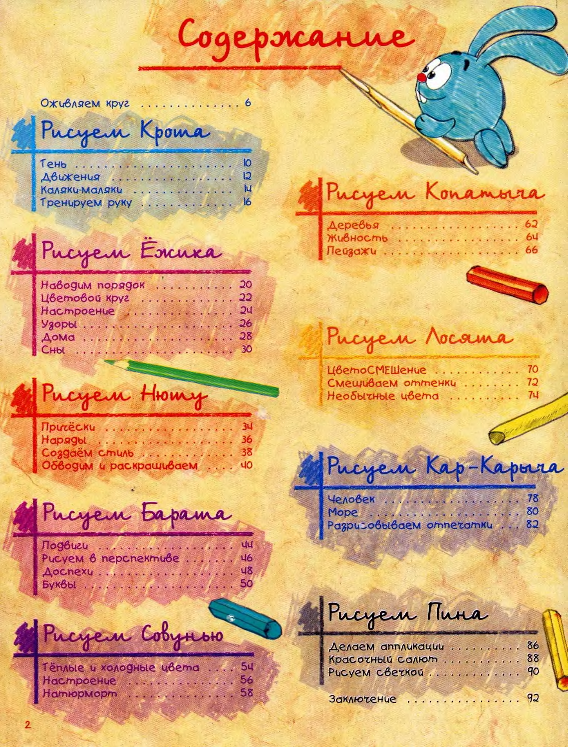 Содержание
Оживляем круг . . . . . . . . . . . . . . 6
Рисуем Кроша
Тень . . . . . . . . . . . . . . . . . . . . 10
Движения . . . . . . . . . . . . . . . . 12
Каляки-маляки . . . . . . . . . . . . 14
Тренируем руку . . . . . . . . . . . 16
Рисуем Ёжика
Наводим порядок . . . . . . . . . . 20
Цветовой круг . . . . . . . . . . . . 22
Настроение . . . . . . . . . . . . . . 24
Узоры . . . . . . . . . . . . . . . . . . 26
Дома . . . . . . . . . . . . . . . . . . . 28
Сны . . . . . . . . . . . . . . . . . . . . 30
Рисуем Нюшу
Причёски . . . . . . . . . . . . . . . . 34
Наряды . . . . . . . . . . . . . . . . . 36
Создаём стиль . . . . . . . . . . . . 38
Обводим и раскрашиваем . . . . 40
Рисуем Бараша
Подвиги . . . . . . . . . . . . . . . . . 44
Рисуем в перспективе . . . . . . 46
Доспехи . . . . . . . . . . . . . . . . . 48
Буквы . . . . . . . . . . . . . . . . . . 50
Рисуем Совунью
Тёплые и холодные цвета . . . . 54
Настроение . . . . . . . . . . . . . . 56
Натюрморт . . . . . . . . . . . . . . 58
Рисуем Копатыча
Деревья . . . . . . . . . . . . . . . . . 62
Живность . . . . . . . . . . . . . . . 64
Пейзажи . . . . . . . . . . . . . . . . 66
Рисуем Лосяша
ЦветоСМЕШение . . . . . . . . . . 70
Смешиваем оттенки . . . . . . . . 72
Необычные цвета . . . . . . . . . . 74
Рисуем Кар-Карыча
Человек . . . . . . . . . . . . . . . . . 78
Море . . . . . . . . . . . . . . . . . . . 80
Разрисовываем отпечатки . . . . 82
Рисуем Пина
Делаем аппликации . . . . . . . . 86
Красочный салют . . . . . . . . . . 88
Рисуем свечкой . . . . . . . . . . . 90
Заключение . . . . . . . . . . . . . . 92
2